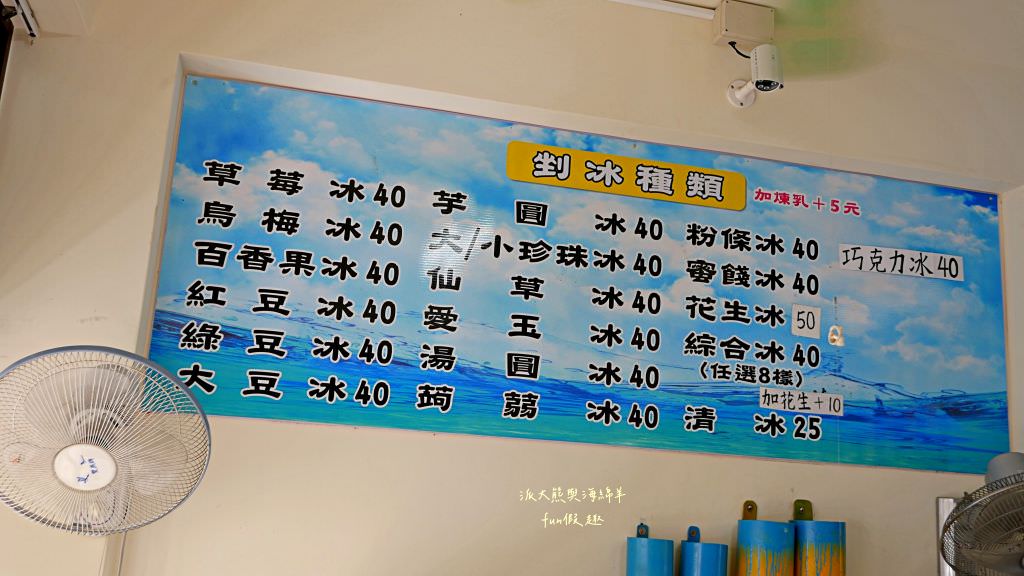 剉冰種類
加煉乳＋5元
草莓冰40
烏梅冰40
百香果冰40
紅豆冰40
綠豆冰40
大豆冰40
芋圓冰40
大/小珍珠冰40
仙草冰40
愛玉冰40
湯圓冰40
蒟蒻冰40
粉條冰40
蜜餞冰40
花生冰50
綜合冰40
(任選8樣)
加花生+10
清冰25
巧克力冰40
派大熊與海綿羊
fun假趣